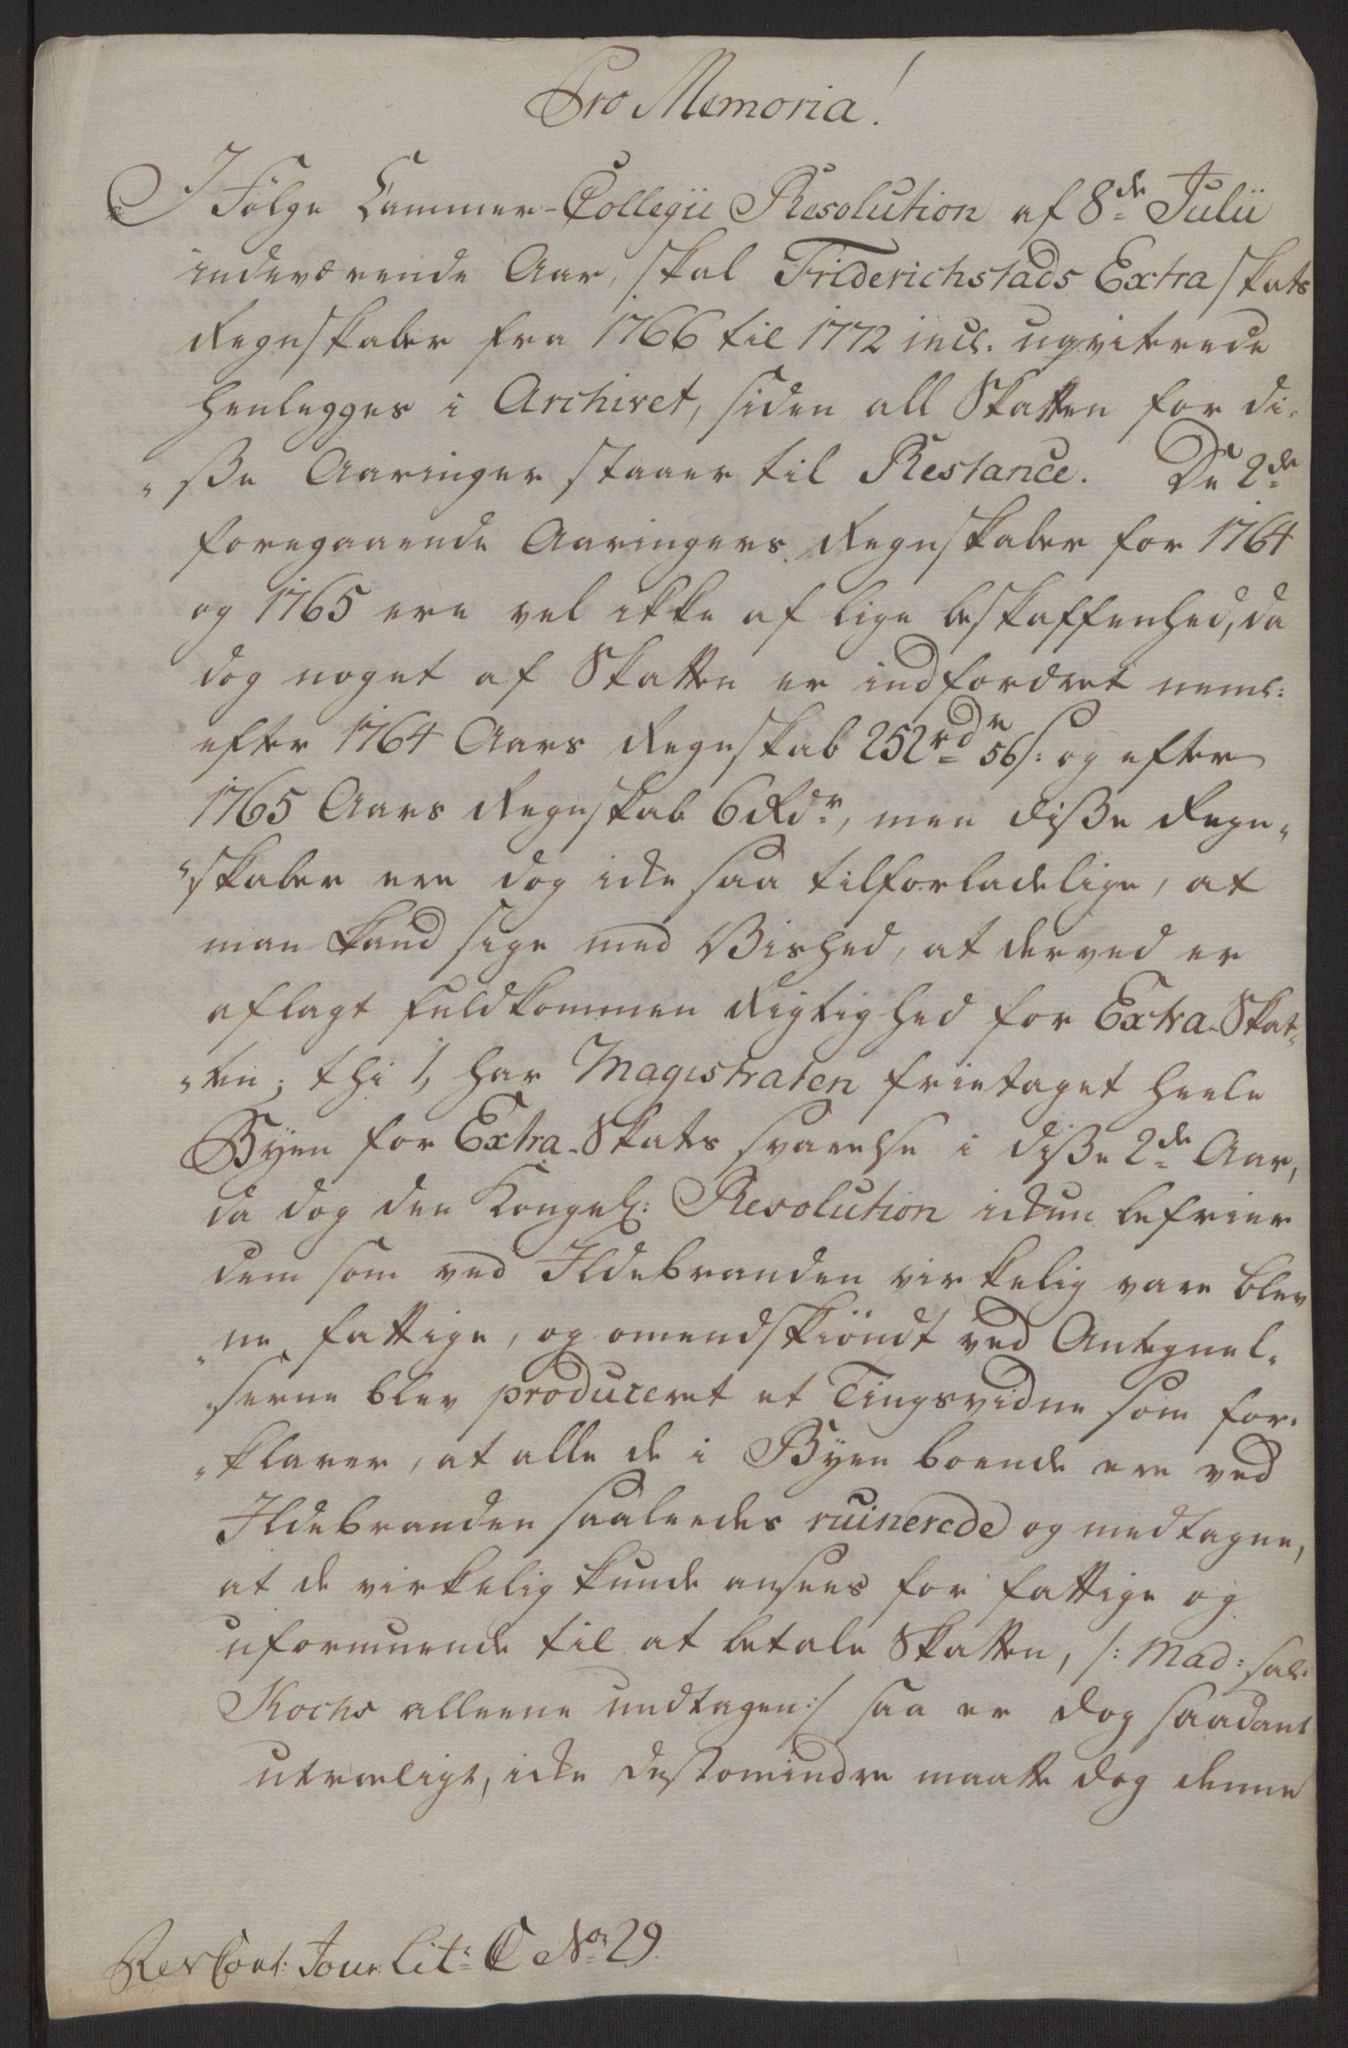 Pro Memoria!
I Følge Cammer-Collegii Resolution af 8de Julii
indeværende Aar, skal Friderichstads Extra skats
Regnskaber fra 1766 til 1772 incl. uqviterede
henlegges i Archivet, siden all Skatten for di-
"ße Aaringer staaer til Restance. De 2de
foregaaende Aaringers Regnskaber for 1764
og 1765 ere vel ikke af lige beskaffenhed, da
dog noget af Skatten er indfordret neml:
efter 1764 Aars Regnskab 252 rdr 56 s: og efter
1765 Aars Regnskab 6 Rdr, men diße Regn"
"skaber ere dog icke saa tilforladelige, at
man kand sige med Vished, at derved er
aflagt fuldkommen Rigtighed for Extra-Skat-
"ten; thi 1, har Magistraten frietaget heele
Byen for Extra-Skats svarelse i diße 2de Aar,
da dog den Kongel: Resolution ickun befrier
dem som ved Ildebranden virkelig vare blev
"ne fattige, og omendskiöndt ved Antegnel-
serne blev produceret et Tingsvidne som for-
"klarer, at alle de i Byen boende ere ved
Ildebranden saaleedes ruinerede og medtagne,
at de virkelig kunde ansees for fattige og
uformuende til at betale Skatten, /: Mad: sal:
Kochs alleene undtagen:/ saa er dog saadant
utroeligt, icke destomindre maatte dog denne
Rev Cont: Jour: Litr: C No 29.